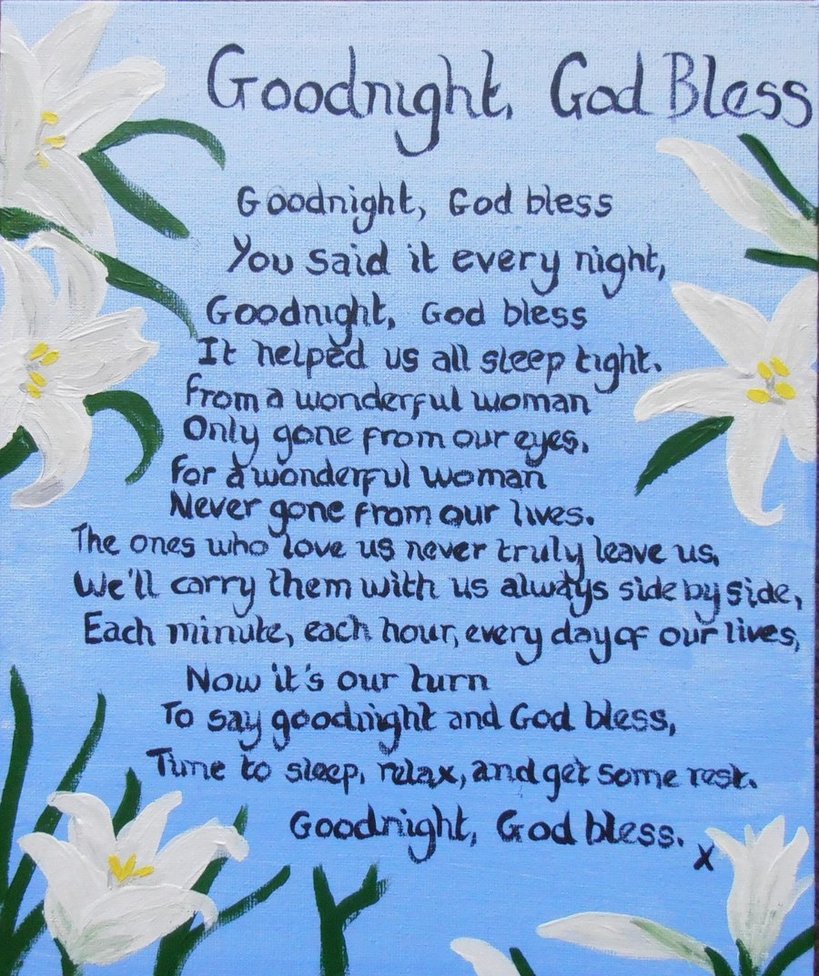 Goodnight, God Bless
Goodnight, God bless
You said it every night,
Goodnight, God bless
It helped us all sleep tight.
From a wonderful woman
Only gone from our eyes,
For a wonderful woman
Never gone from our lives.
The ones who love us never truly leave us,
We'll carry them with us always side by side,
Each minute, each hour, every day of our lives,
Now it's our turn
To say goodnight and God bless,
Time to sleep, relax, and get some rest.
Goodnight, God bless. x